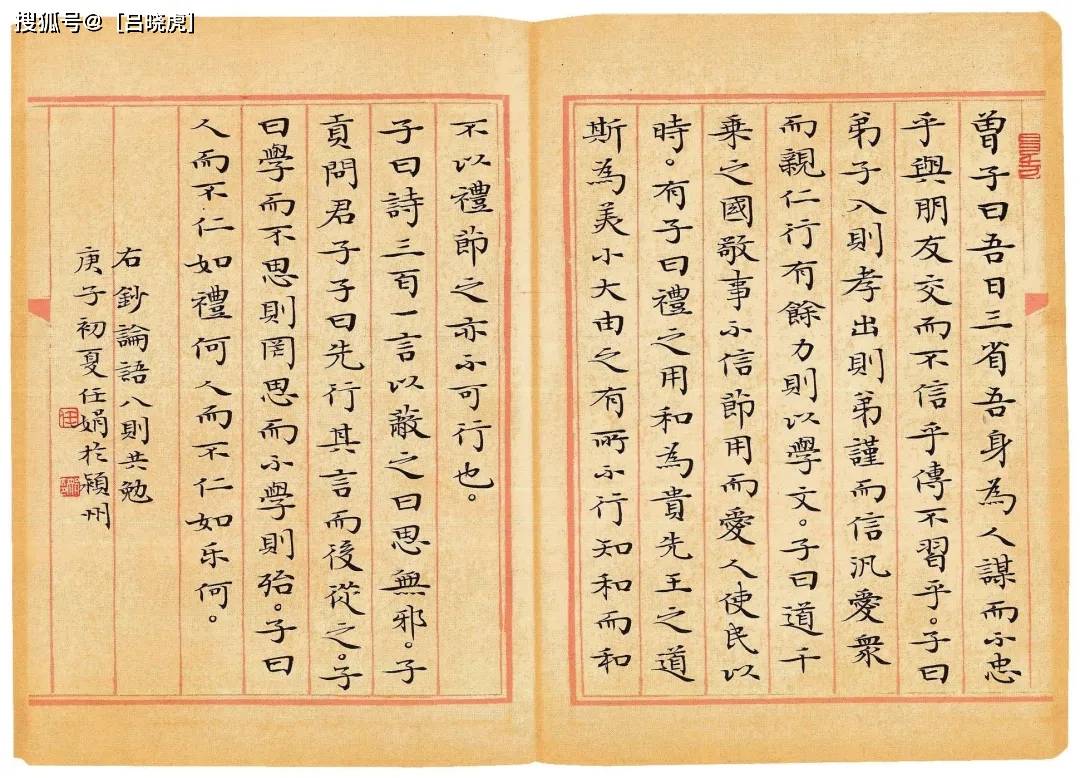 搜狐号@［吕晓虎］
曾子曰吾日三省吾身為人謀而不忠
乎與朋友交而不信乎傳不習乎。子曰
弟子入則孝出則弟謹而信汎愛衆
而親仁行有餘力則以學文。子曰道千
乘之國敬事不信節用而愛人使民以
時。有子曰禮之用和為貴先王之道
斯為美小大由之有所不行知和而和
不以禮節之亦不可行也。
子曰詩三百一言以蔽之曰思無邪。子
貢問君子子曰先行其言而後從之。子
曰學而不思則罔思而不學則殆。子曰
人而不仁如禮何人而不仁如乐何。
右鈔論語八則共勉
庚子初夏任娟於潁州